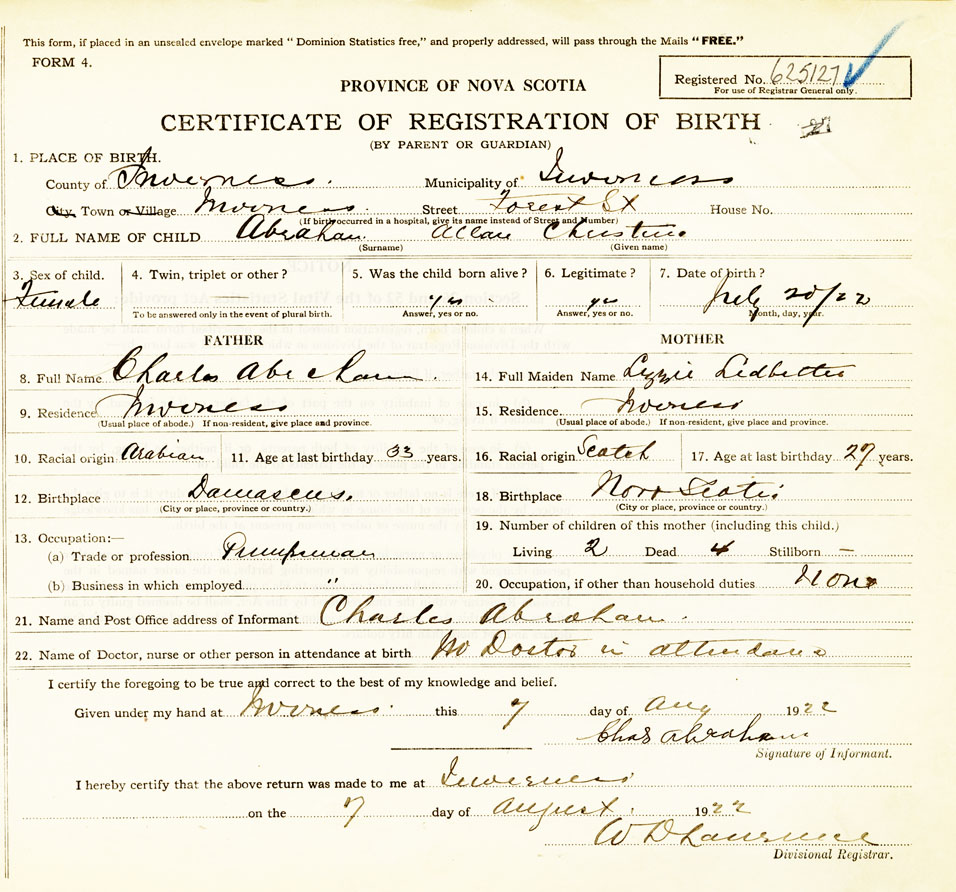 This form, if placed in an unsealed envelope marked "Dominion Statistics free," and properly addressed, will pass through the Mails "FREE."
FORM 4.
Registered No. 625127
For use of Registrar General only.
PROVINCE OF NOVA SCOTIA
CERTIFICATE OF REGISTRATION OF BIRTH
(BY PARENT OR GUARDIAN)
1. PLACE OF BIRTH.
County of Inverness. Municipality of Inverness
City, Town or Village Inverness. Street Forest St House No.
(If birth occurred in a hospital, give its name instead of Street and Number)
2. FULL NAME OF CHILD Abraham Allan Christine
(Surname) (Given name)
3. Sex of child. 4. Twin, triplet or other? 5. Was the child born alive? 6. Legitimate? 7. Date of birth?
Female yes yes July 20/22
To be answered only in the event of plural birth. Answer, yes or no. Answer, yes or no. Month, day, year.
FATHER MOTHER
8. Full Name Charles Abraham. 14. Full Maiden Name Lizzie Ledbetter
9. Residence Inverness 15. Residence. Inverness
(Usual place of abode.) If non-resident, give place and province. (Usual place of abode.) If non-resident, give place and province.
10. Racial origin Arabian 11. Age at last birthday 33 years. 16. Racial origin Scotch 17. Age at last birthday 27 years.
12. Birthplace Damascus. 18. Birthplace Nova Scotia
(City or place, province or country.) (City or place, province or country.)
13. Occupation:— 19. Number of children of this mother (including this child.)
(a) Trade or profession Pumpsman Living 2 Dead 4 Stillborn —
(b) Business in which employed " 20. Occupation, if other than household duties None
21. Name and Post Office address of Informant Charles Abraham.
22. Name of Doctor, nurse or other person in attendance at birth No Doctor in attendance
I certify the foregoing to be true and correct to the best of my knowledge and belief.
Given under my hand at Inverness this 7 day of Aug 1922
Chas Abraham
Signature of Informant.
I hereby certify that the above return was made to me at Inverness
on the 7 day of August. 1922
W D Lawrence
Divisional Registrar.